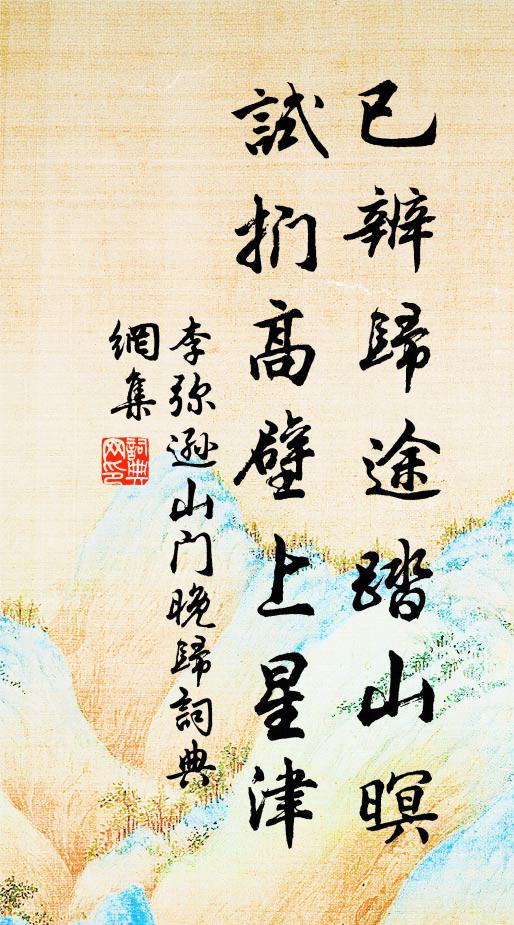 已辦歸途踏山暝
試捫高壁上星津
李弥遜山门晚歸詞典
網集
詞典
网印